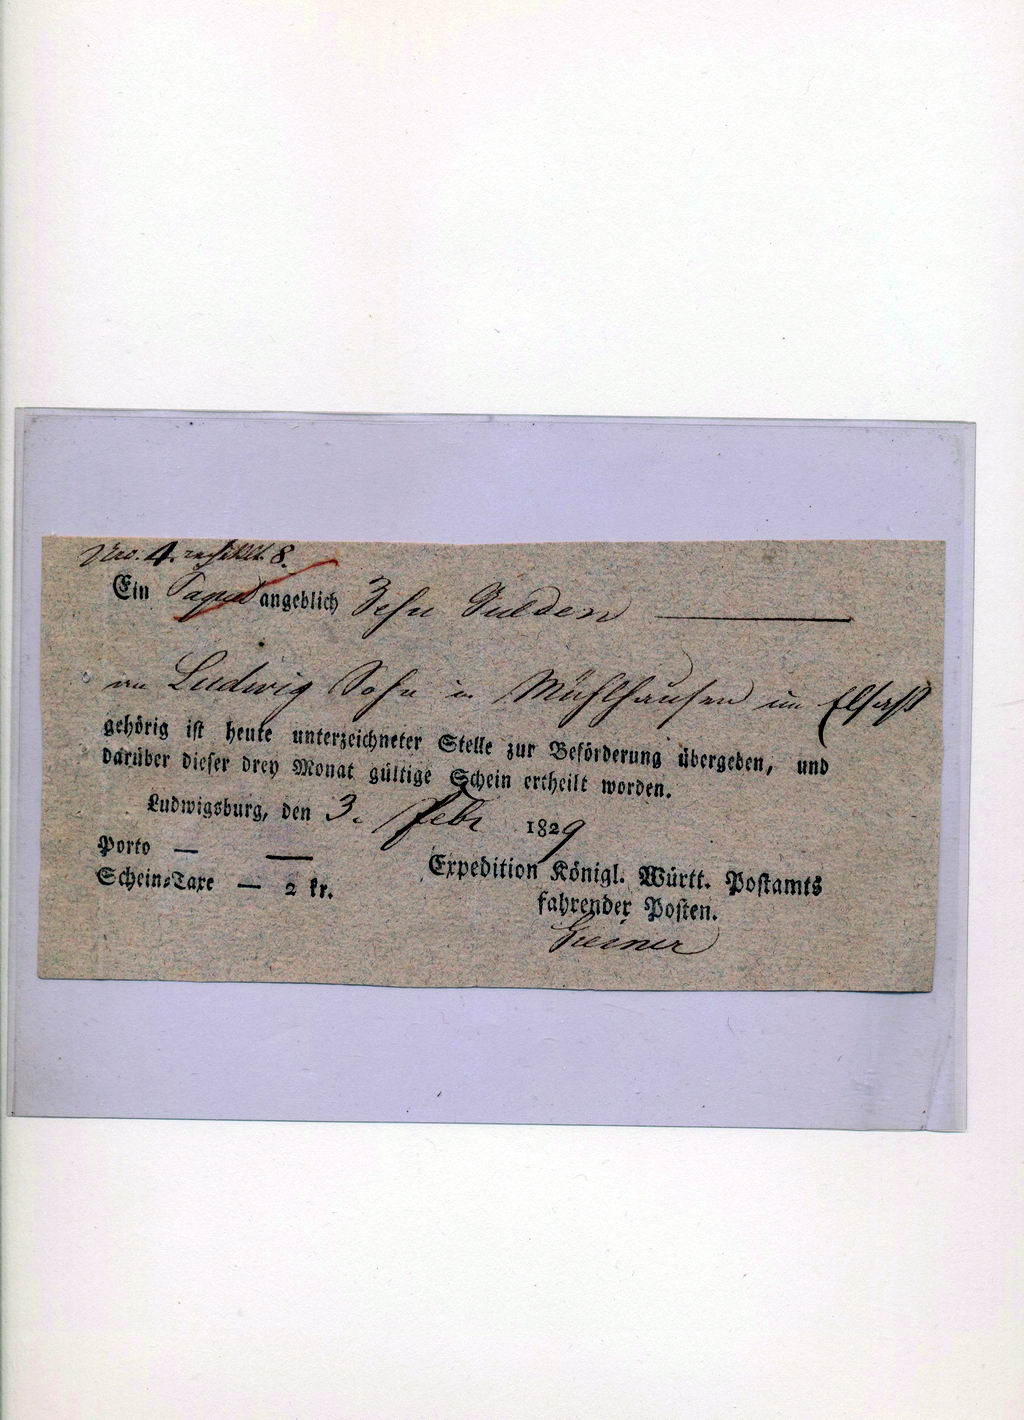 Nro. 4. 8.
Ein Paquet angeblich Zehn Gulden
an Ludwig Sohn in Mühlhausen im Elsaß
gehörig ist heute unterzeichneter Stelle zur Beförderung übergeben, und
darüber dieser drey Monat gültige Schein ertheilt worden.
Ludwigsburg, den 3. Febr 1829
Porto — —
Schein-Taxe — 2 kr.
Expedition Königl. Württ. Postamts
fahrender Posten.
Greiner